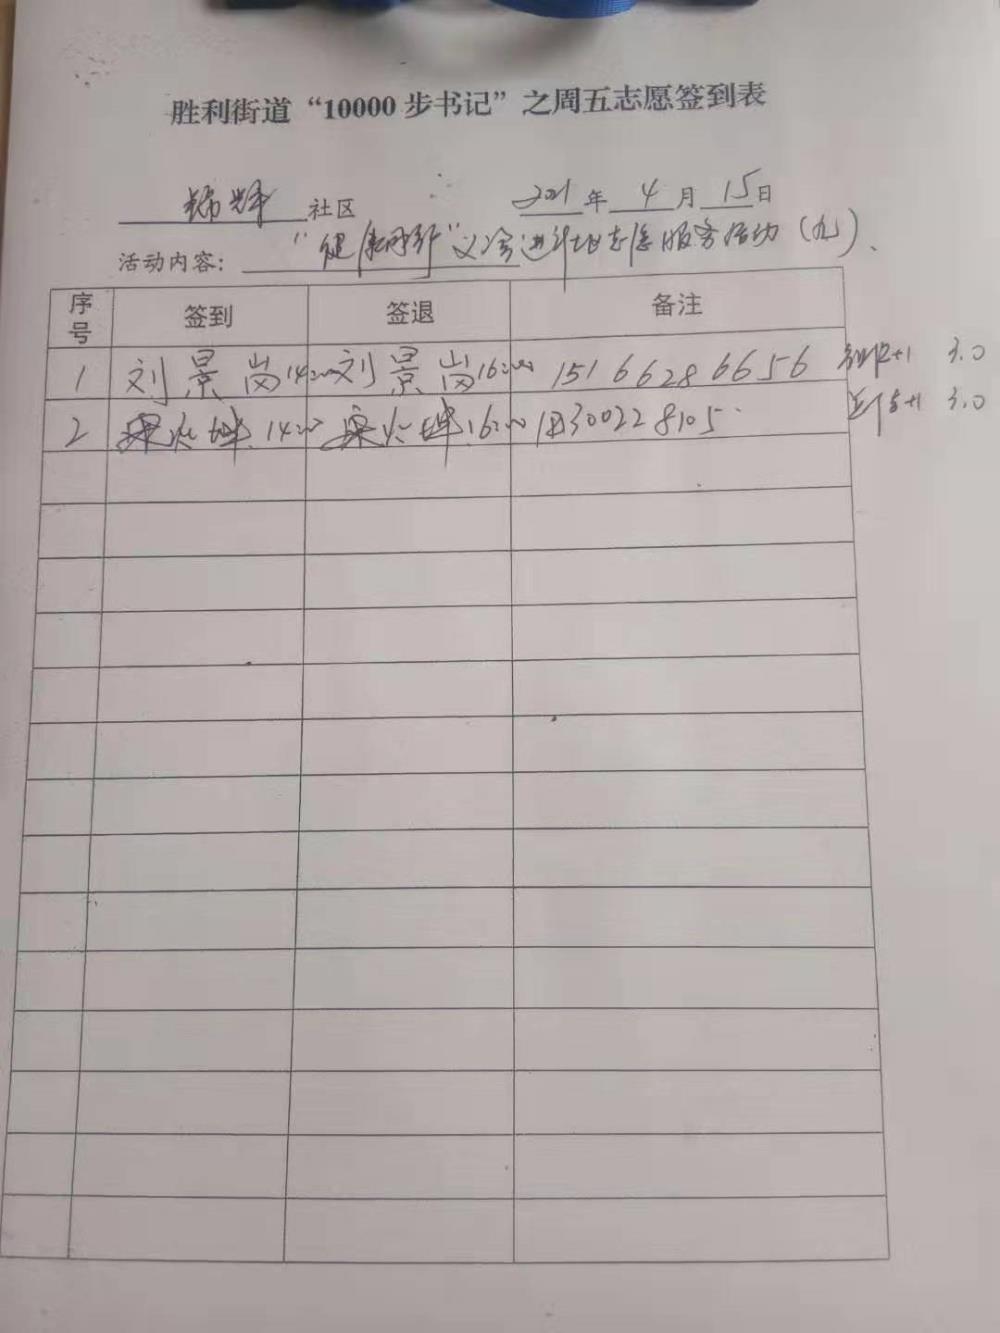 胜利街道“10000步书记”之周五志愿签到表
锦苑社区 2021年4月15日
活动内容：“健康同行”义诊进社区志愿服务活动（九）.
序号 签到 签退 备注
1 刘景岗14:00 刘景岗16:00 15166286656 +1 3.0
2 14:00 16:00 18300228105 +1 3.0